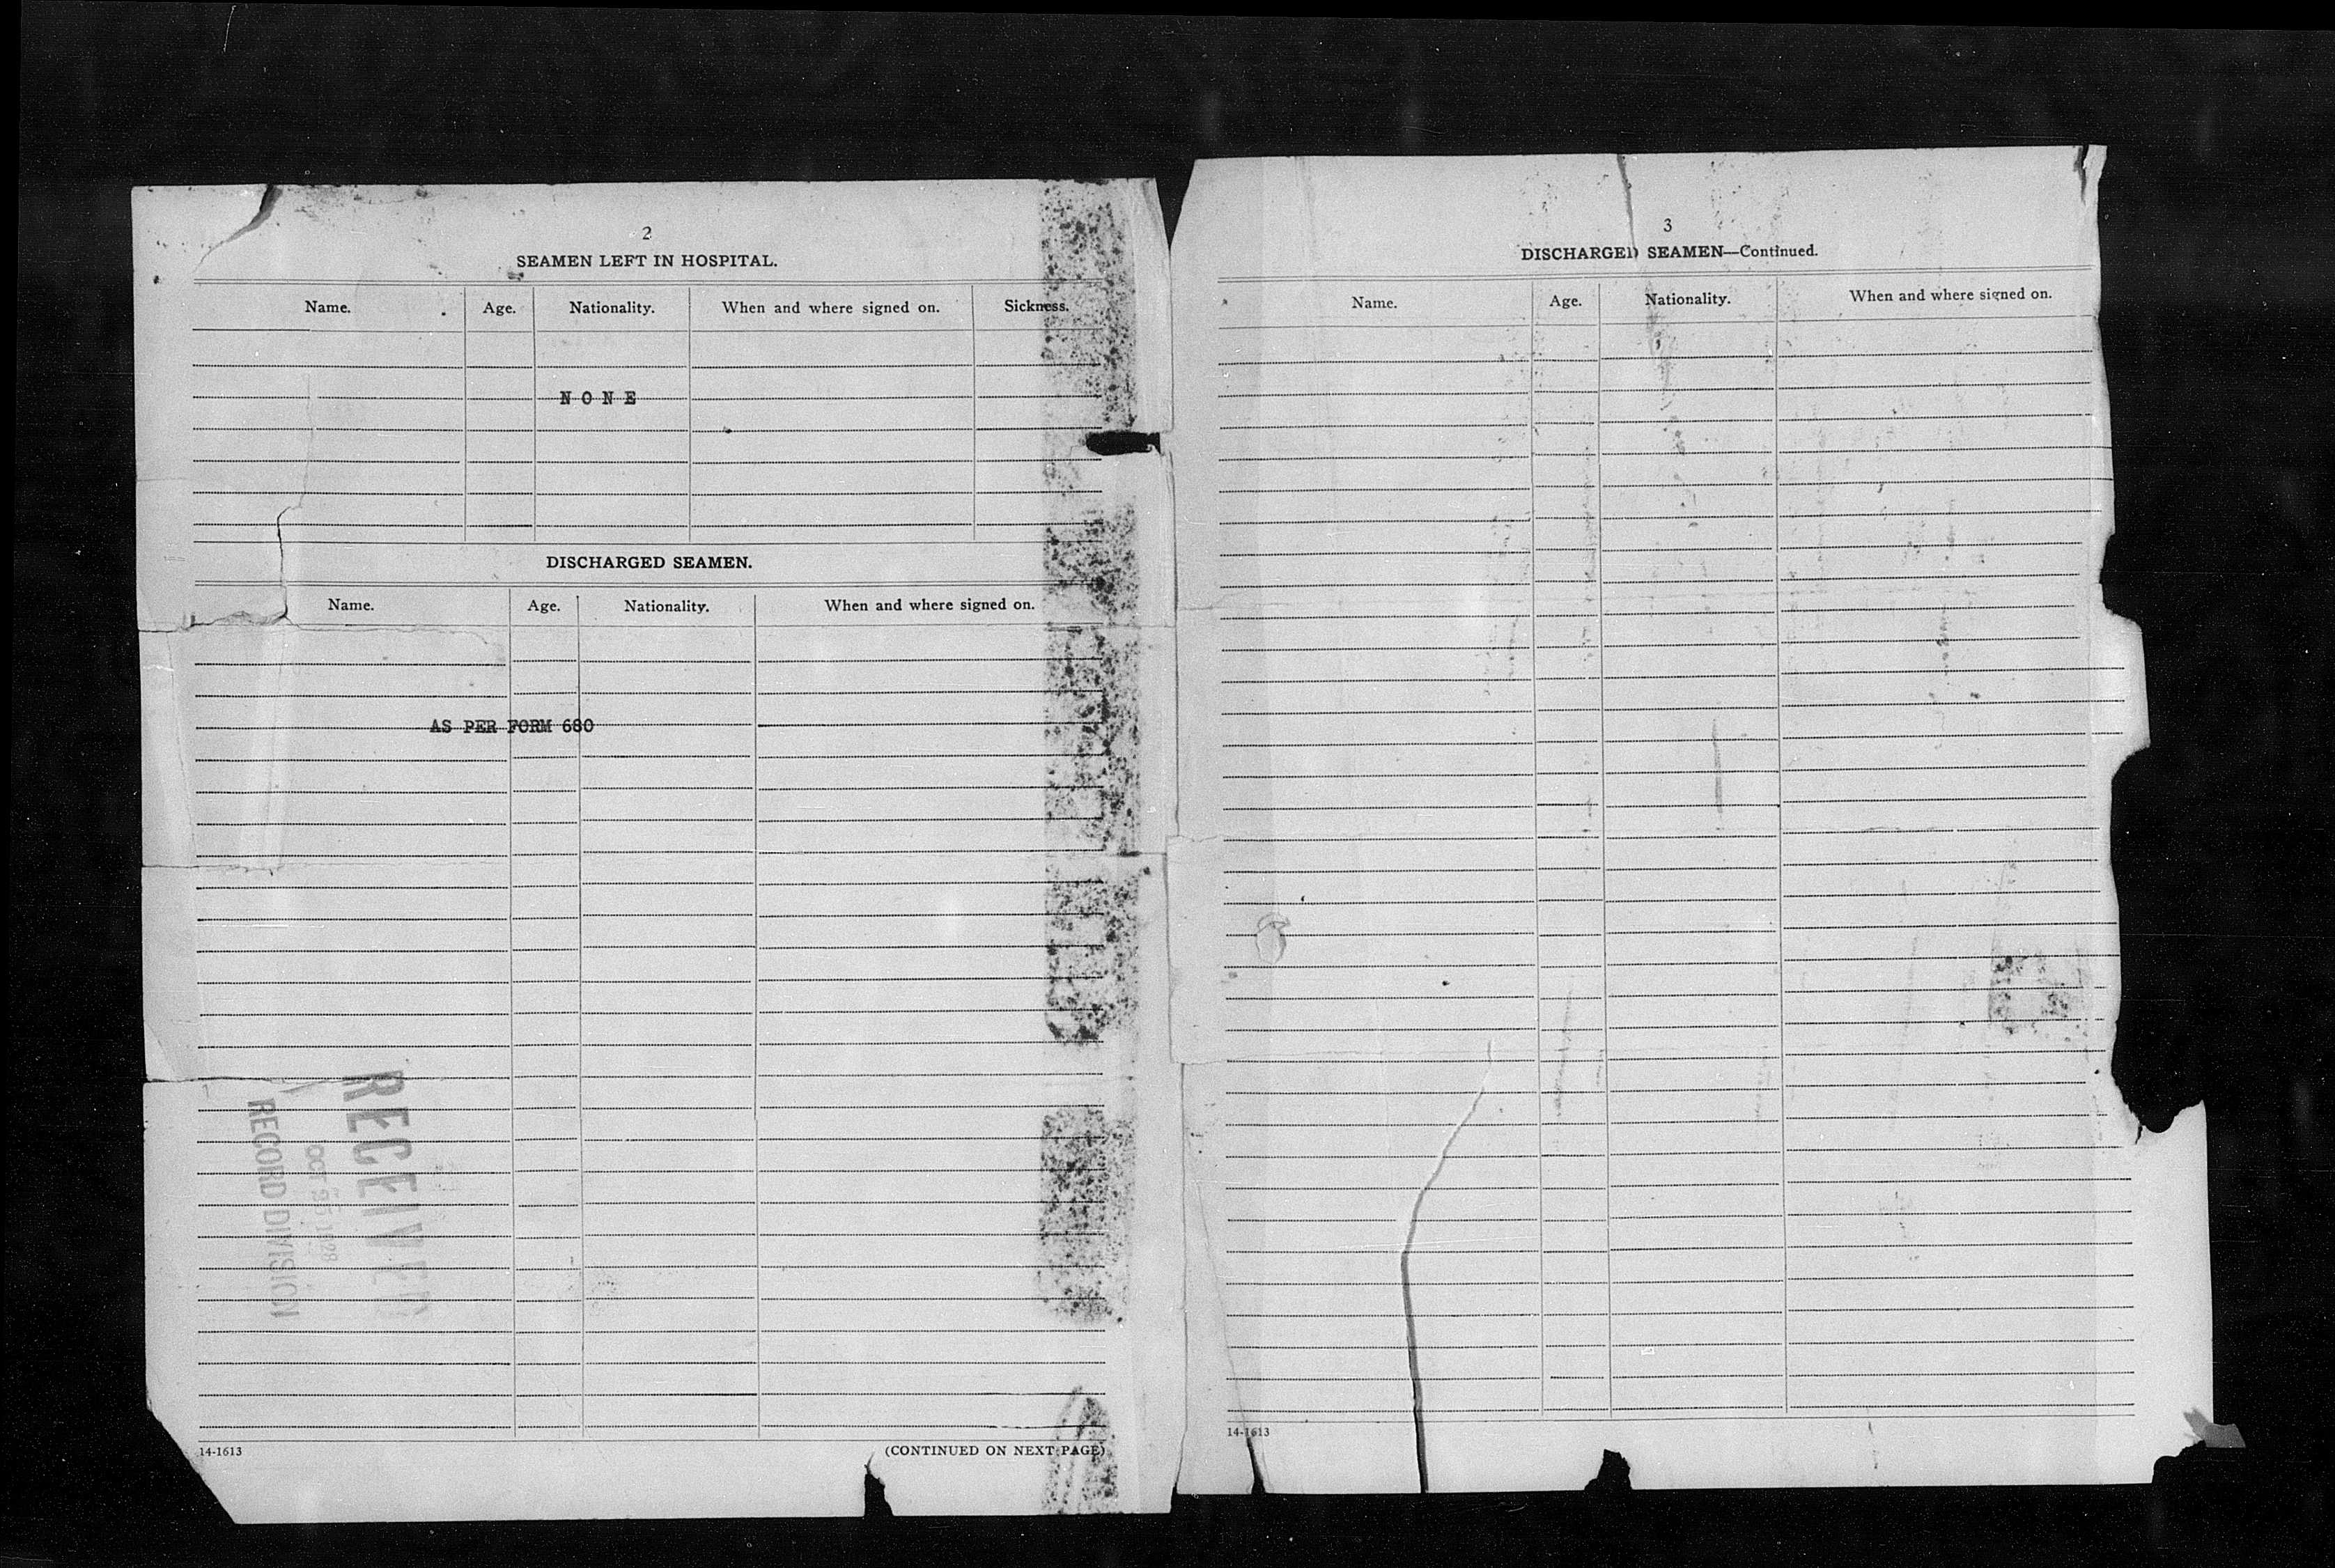 2
SEAMEN LEFT IN HOSPITAL.
Name. Age. Nationality. When and where signed on. Sickness.
NONE
DISCHARGED SEAMEN.
Name. Age. Nationality. When and where signed on.
AS PER FORM 680
RECEIVED
OCT 1928
RECORD DIVISION
14-1613
(CONTINUED ON NEXT PAGE)
3
DISCHARGED SEAMEN—Continued.
Name. Age. Nationality. When and where signed on.
14-1613